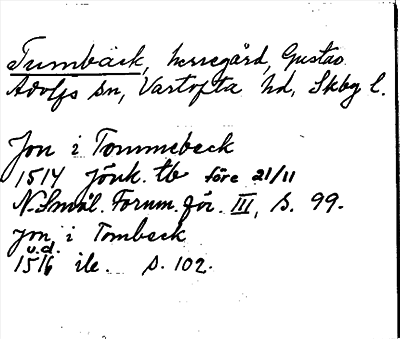 Tumbäck, herregård, Gustav
Adolfs sn, Vartofta hd, Skbg l.
Jon i Tommebeck
1514 Jönk. tb före 21/11
N. Smål. Fornm.för. III, s. 99.
Jon i Tombeck
u.d.
1516 ile. s. 102.